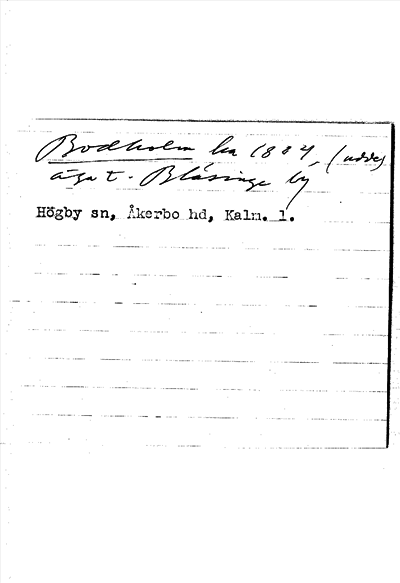 Bodholm ha 1884, (udde)
ägat. Bläsinge by
Högby sn, Åkerbo hd, Kalm. l.